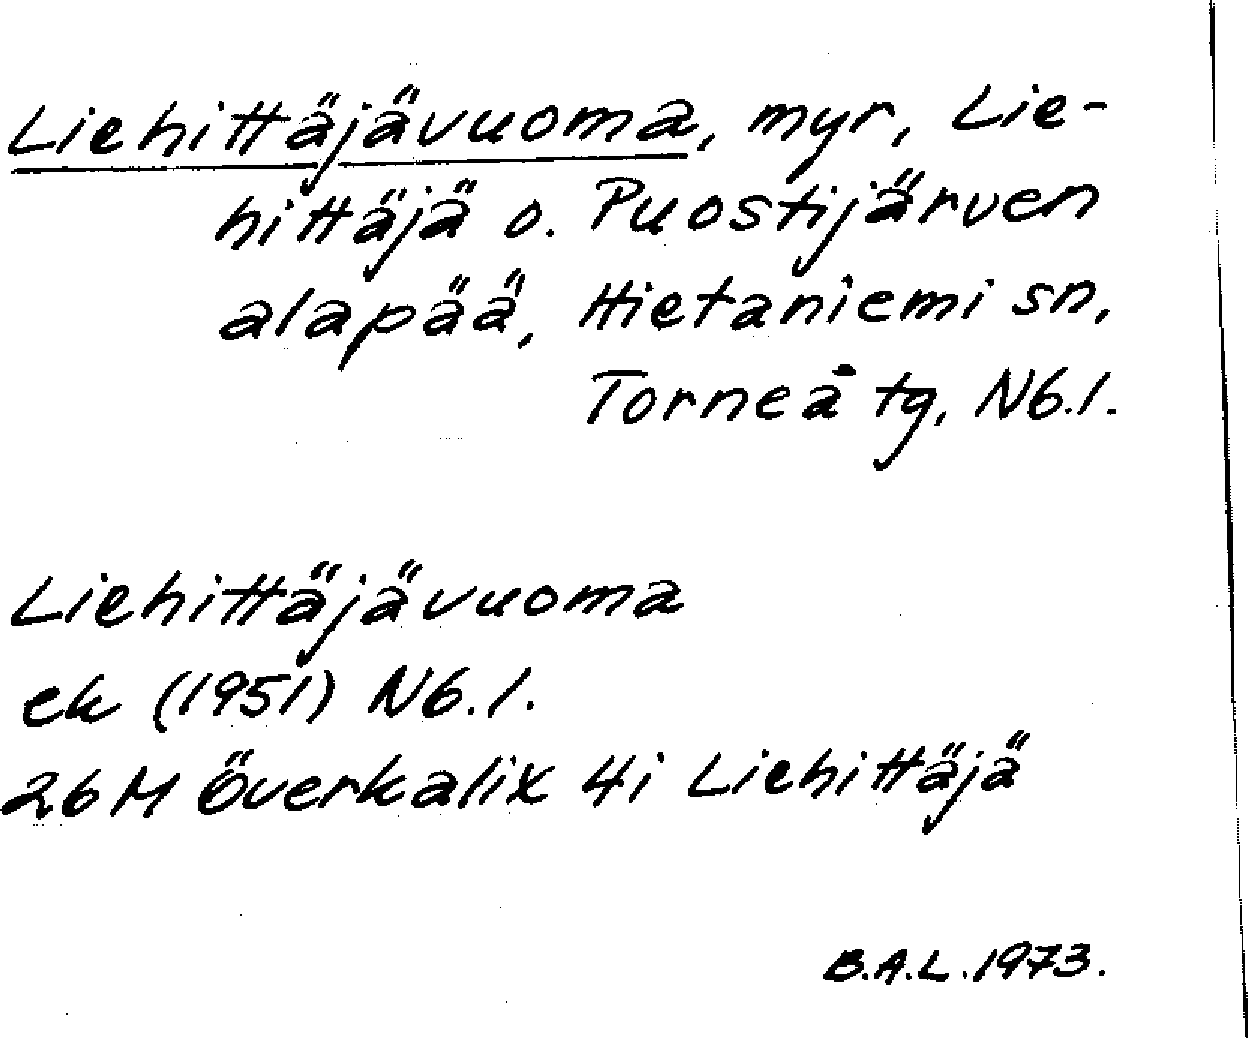 Liehittäjävuoma, myr, Lie-
hittäjä o. Puostijärven
alapää, Hietaniemi sn,
Torneå tg, N6.1.
Liehittäjävuoma
ek (1951) N6.1.
26M Överkalix 4i Liehittäjä
B.A.L. 1973.